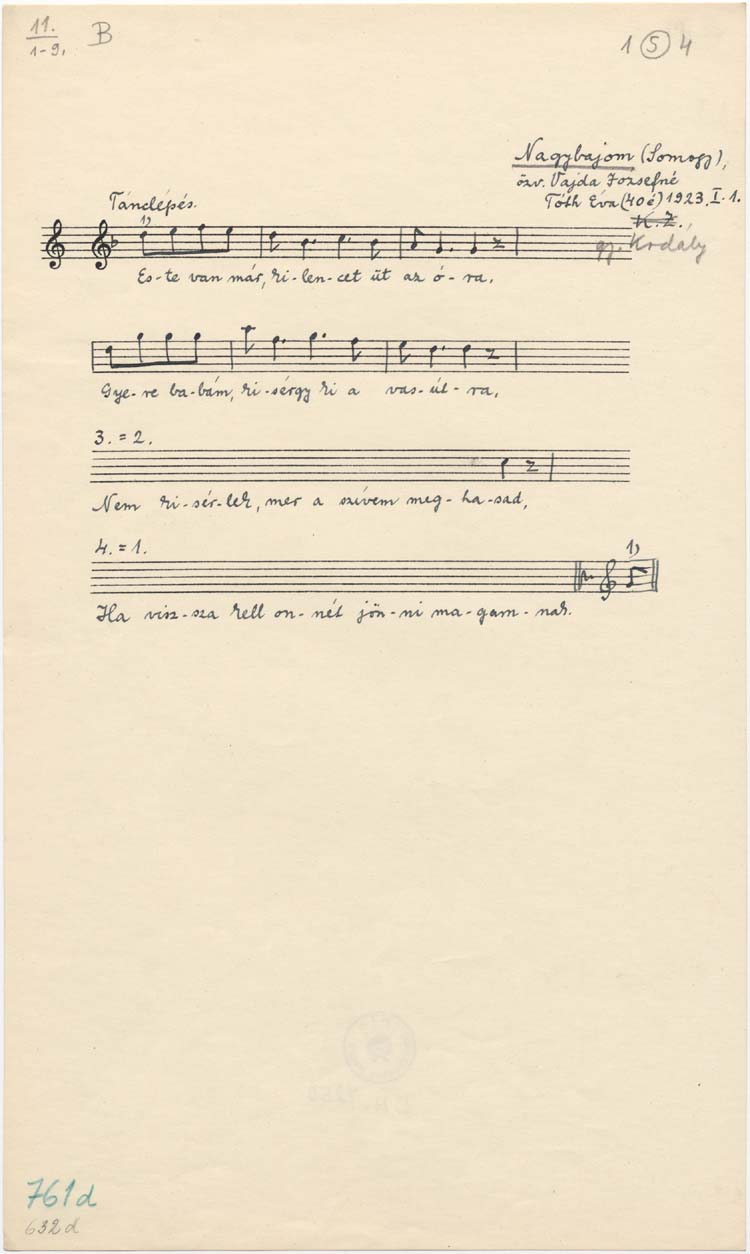 11.
1-9.
B
1 5 4
Nagybajom (Somogy),
özv. Vajda Józsefné
Tóth Éva (40 é) 1923. I. 1.
K. Z.
gy. Kodály
Tánclépés.
1)
Es-te van már, ki-len-cet üt az ó-ra,
Gye-re ba-bám, ki-sérgy ki a vas-út-ra,
3. = 2.
Nem ki-sér-lek, mer a szívem meg-ha-sad,
4. = 1.
1)
Ha visz-sza kell on-nét jön-ni ma-gam-nak.
761d
632d